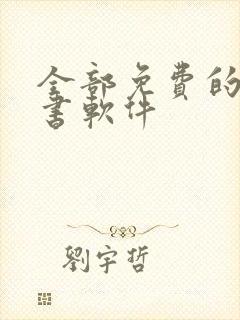 全部免费的
書軟件
劉宇哲